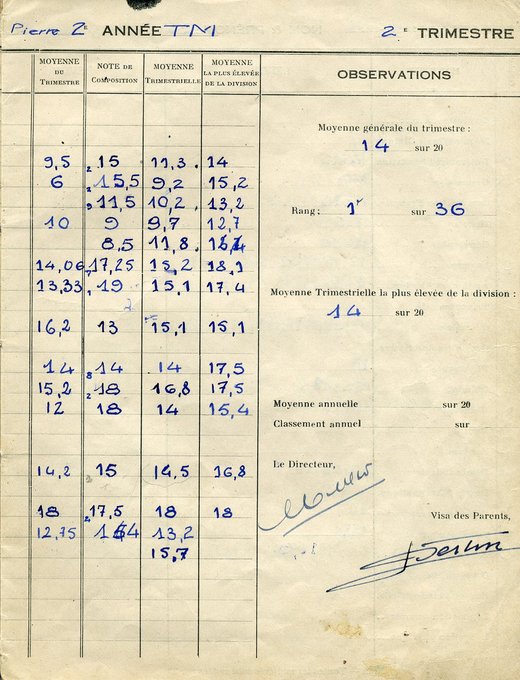 Pierre 2e ANNÉE TM 2e TRIMESTRE
MOYENNE DU TRIMESTRE NOTE DE COMPOSITION MOYENNE TRIMESTRIELLE MOYENNE LA PLUS ÉLEVÉE DE LA DIVISION OBSERVATIONS
Moyenne générale du trimestre :
14 sur 20
9,5 15 11,3 14
6 15,5 9,2 15,2
11,5 10,2 13,2
Rang : 1r sur 36
10 9 9,7 12,7
8,5 11,8
14,06 17,25 15,2 18,1
13,33 19 15,1 17,4
Moyenne Trimestrielle la plus élevée de la division :
14 sur 20
16,2 13 15,1 15,1
14 14 14 17,5
15,2 18 16,8 17,5
12 18 14 15,4
Moyenne annuelle sur 20
Classement annuel sur
14,2 15 14,5 16,8
Le Directeur,
18 17,5 18 18
Visa des Parents,
12,75 14 13,2
15,7